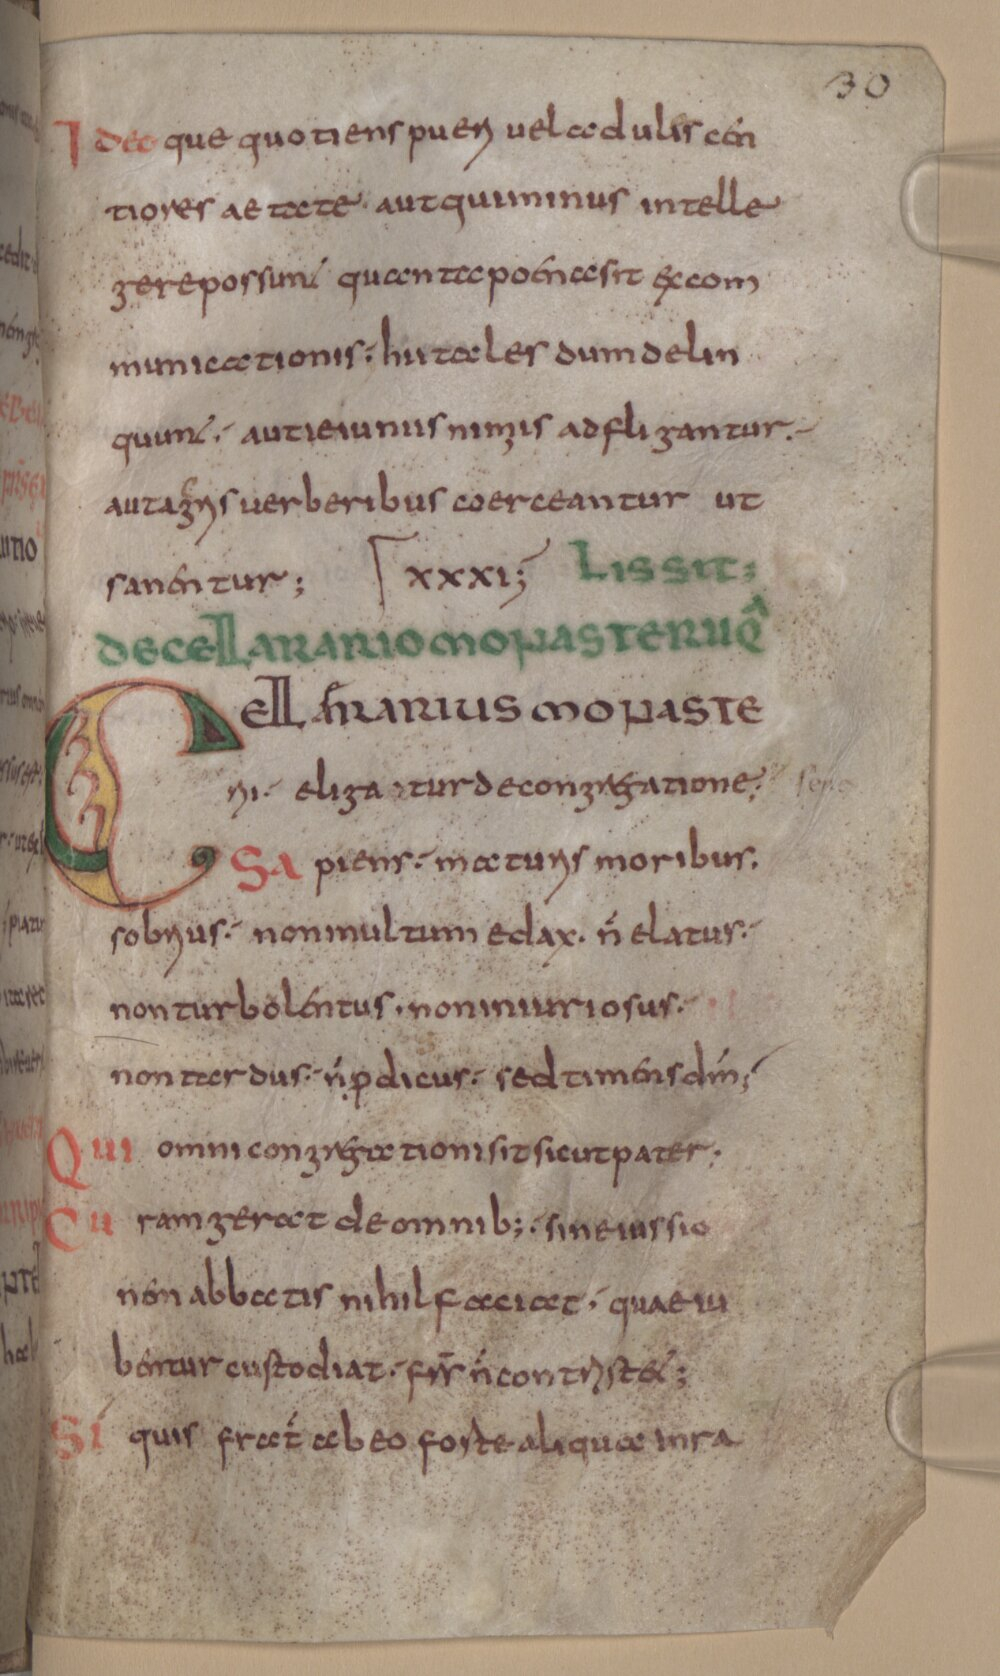 30
Ideo que quotiens pueri uel adulis cen
tiores aetate· aut qui minus intelle
gere possunt quanta poena sit excom
municationis· hii tales dum delin
quunt· aut ieiuniis nimis adfligantur·
aut acris uerberibus coerceantur ut
sanentur; xxxi; Lis sit;
de cellarario monasterii quā
Cellararius monaste
rii· eligatur de congregatione·
Sapiens· maturis moribus·
sobrius· non multum edax· n̄ elatus·
non turbolentus· non iniuriosus·
non tardus· n̄ prodicus· sed timens dm̄;
Qui omni congregationi sit sicut pater·
Curam gerat de omnib;· sine iussio
nen abbatis nihil faciat· quae iu
bentur custodiat· fr̄r n̄ contristet;
Si quis frat̄ ab eo forte aliqua inra